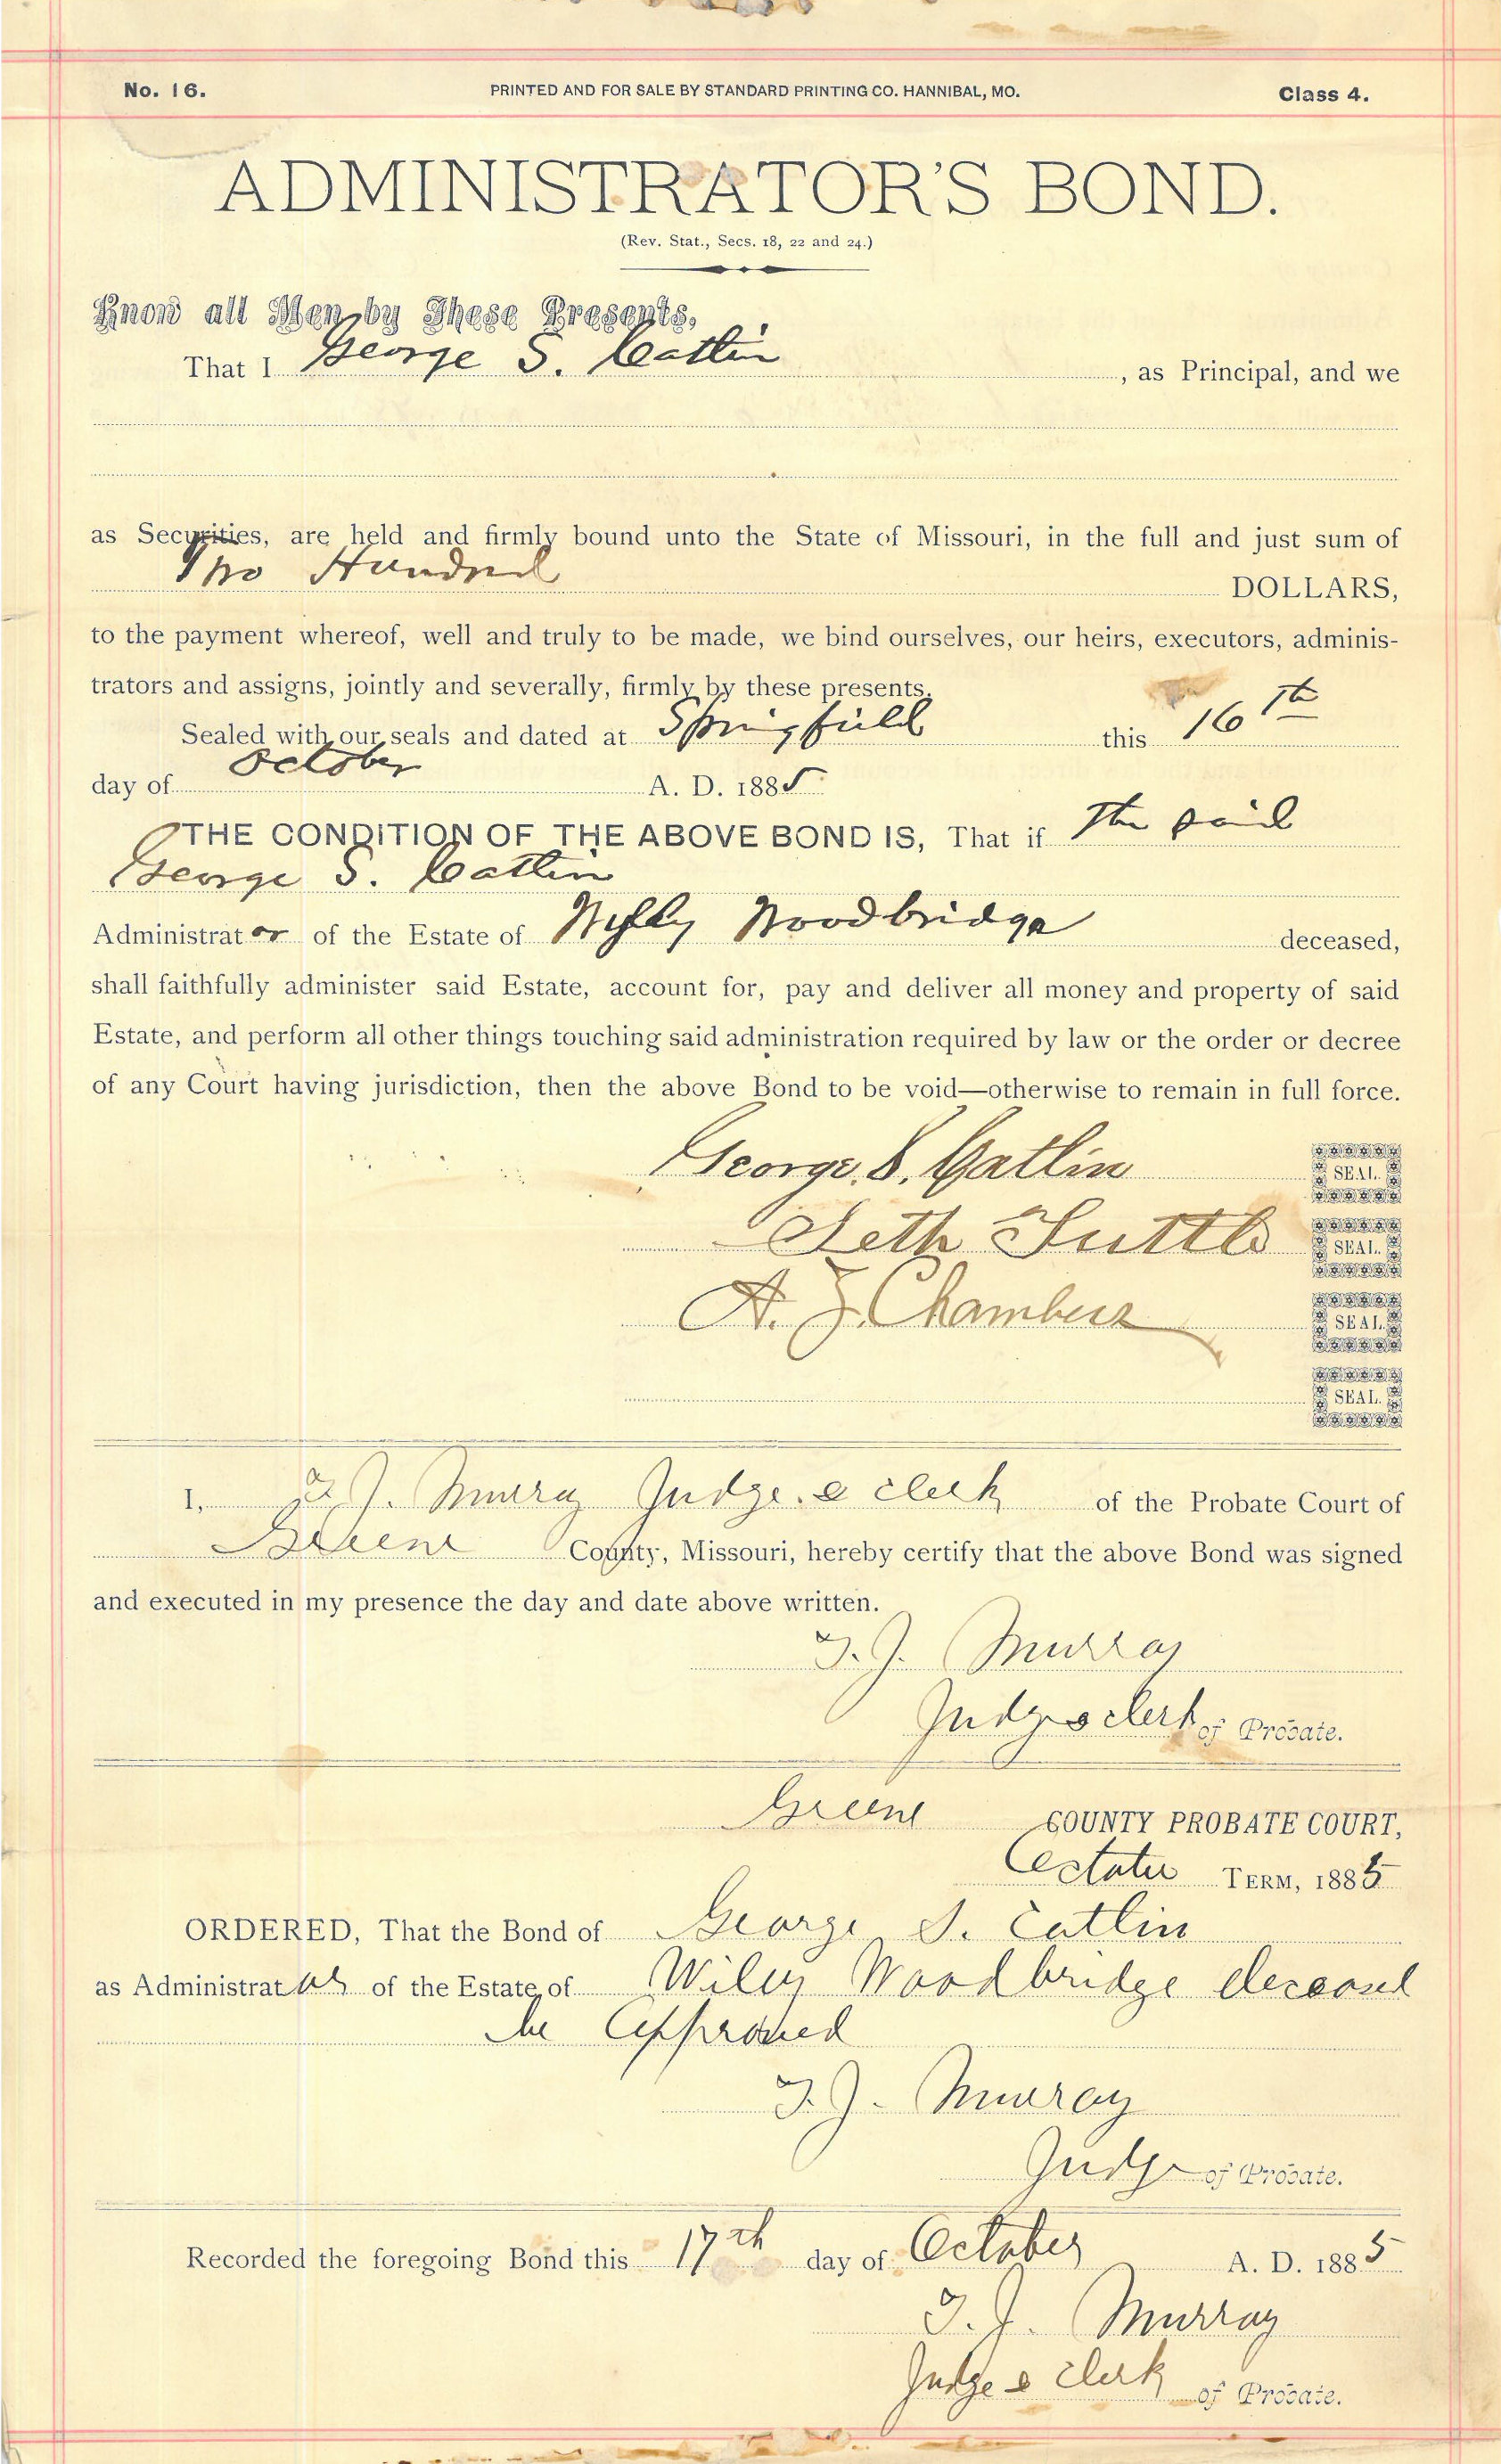 No. 16.
PRINTED AND FOR SALE BY STANDARD PRINTING CO. HANNIBAL, MO.
Class 4.
ADMINISTRATOR'S BOND.
(Rev. Stat., Secs. 18, 22 and 24.)
Know all Men by These Presents,
That I George S. Catlin, as Principal, and we
as Securities, are held and firmly bound unto the State of Missouri, in the full and just sum of
Two Hundred DOLLARS,
to the payment whereof, well and truly to be made, we bind ourselves, our heirs, executors, adminis-
trators and assigns, jointly and severally, firmly by these presents.
Sealed with our seals and dated at Springfield this 16th
day of October A. D. 1885
THE CONDITION OF THE ABOVE BOND IS, That if The said
George S. Catlin
Administrator of the Estate of Wylly Woodbridge deceased,
shall faithfully administer said Estate, account for, pay and deliver all money and property of said
Estate, and perform all other things touching said administration required by law or the order or decree
of any Court having jurisdiction, then the above Bond to be void—otherwise to remain in full force.
George. S. Catlin SEAL.
Seth Tuttle SEAL.
A. J. Chambers SEAL.
SEAL.
I, T. J. Murray Judge & clerk of the Probate Court of
Greene County, Missouri, hereby certify that the above Bond was signed
and executed in my presence the day and date above written.
T. J. Murray
Judge & clerk of Probate.
Greene COUNTY PROBATE COURT,
October TERM, 1885
ORDERED, That the Bond of George S. Catlin
as Administrator of the Estate of Wiley Woodbridge deceased
be Approved
T. J. Murray
Judge of Probate.
Recorded the foregoing Bond this 17th day of October A. D. 1885
T. J. Murray
Judge & Clerk of Probate.